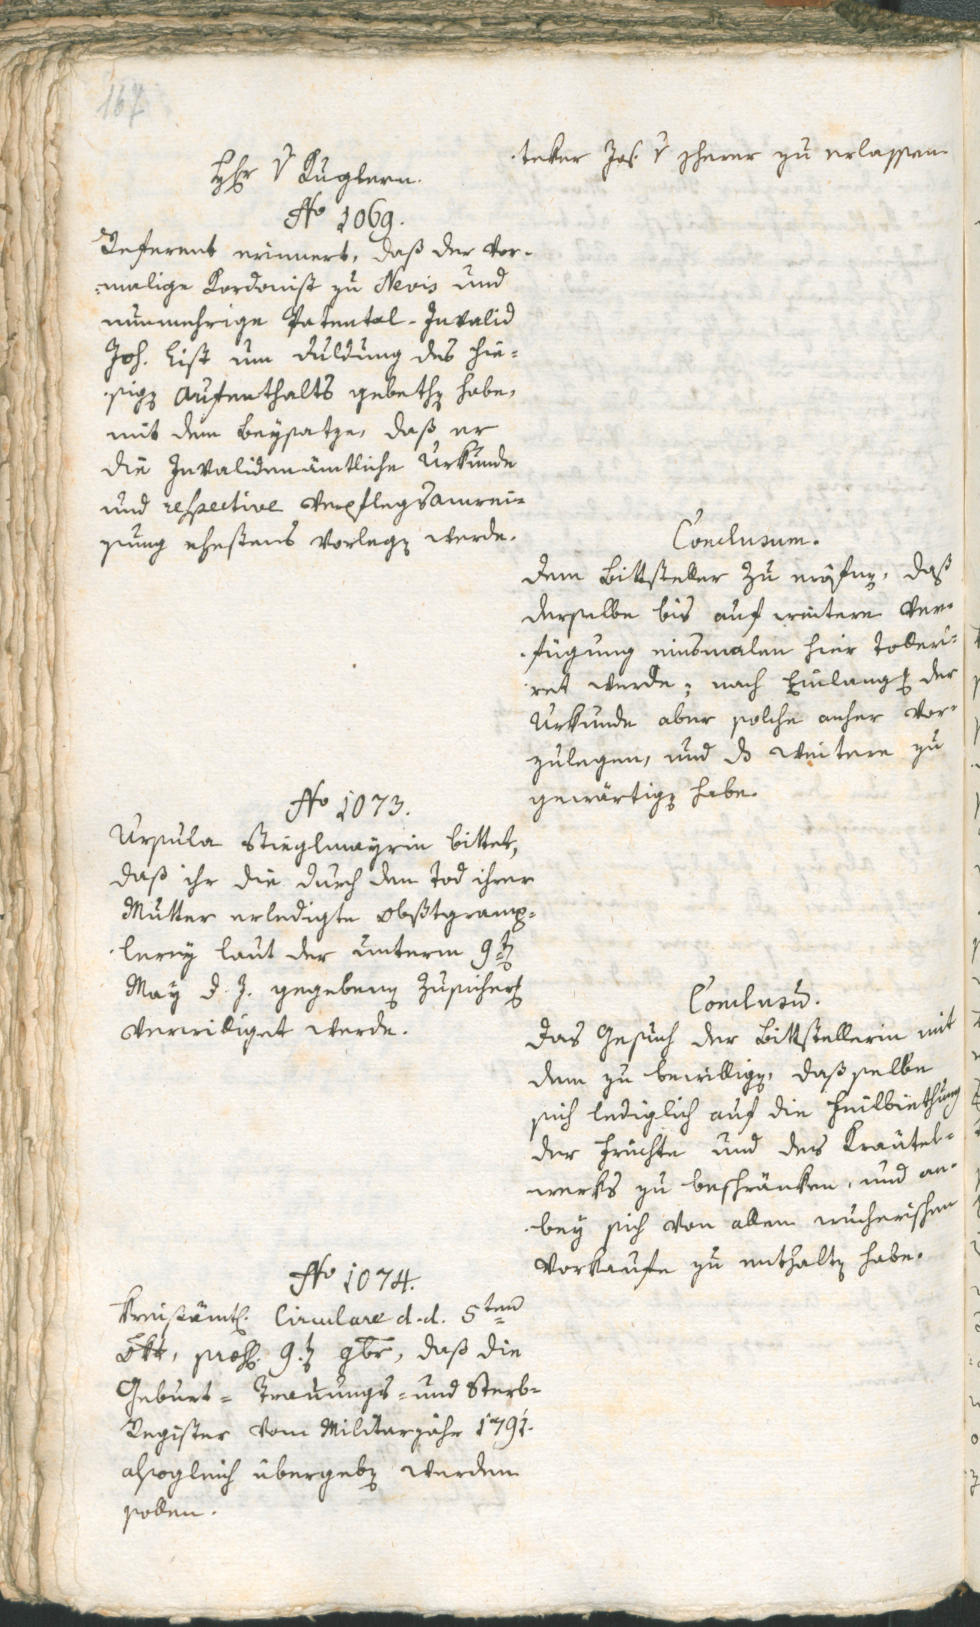 167
Hr v Kuglern.
No 1069.
Referent erinnert, daß der vor-
malige Kordonist zu Nevis und
nunmehrige Patental-Invalid
Joh. List um Duldung des hie-
sigen Aufenthalts gebethen habe,
mit dem Beysatze, daß er
die Invalidenämtliche Urkunde
und respective Verpflegsanwei-
sung ehestens vorlegen werde.
No 1073.
Ursula Stieglmayrin bittet,
daß ihr die durch den Tod ihrer
Mutter erledigte Obstgramp-
lerey laut der unterm 9ten
May d. J. gegebenen Zusicherung
verwilliget werde.
No 1074.
Kreisämtl. Circulare d.d. 5ten
Okt, praes. 9.ten 9br, daß die
Geburt- Trauungs- und Sterb-
Register vom Militarjahr 1791.
alsogleich übergeben werden
sollen.
teker Jos. v Scherer zu erlassen.
Conclusum.
Dem Bittsteller zu eröfnen, daß
derselbe bis auf weitere Ver-
fügung einsmalen hier toleri-
ret werde; nach Einlangung der
Urkunde aber solche anher vor-
zulegen, und das weitere zu
gewärtigen habe.
Conclusum.
Das Gesuch der Bittstellerin mit
dem zu bewilligen, daß selbe
sich lediglich auf die Feilbiethung
der Früchte und des Kräutel-
werks zu beschränken, und an-
bey sich von allem wucherischen
Vorkaufe zu enthalten habe.